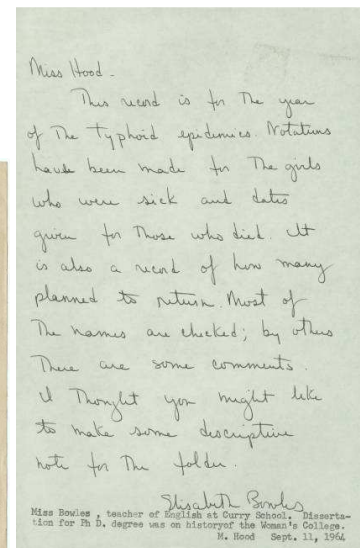 Miss Hood -
This record is for the year
of the typhoid epidemics. Notations
have been made for the girls
who were sick and dates
given for those who died. It
is also a record of how many
planned to return. Most of
the names are checked; by others
there are some comments.
I thought you might like
to make some descriptive
note for the folder.
Elisabeth Bowles
Miss Bowles , teacher of English at Curry School. Disserta-
tion for Ph D. degree was on historyof the Woman's College.
M. Hood   Sept. 11, 1964